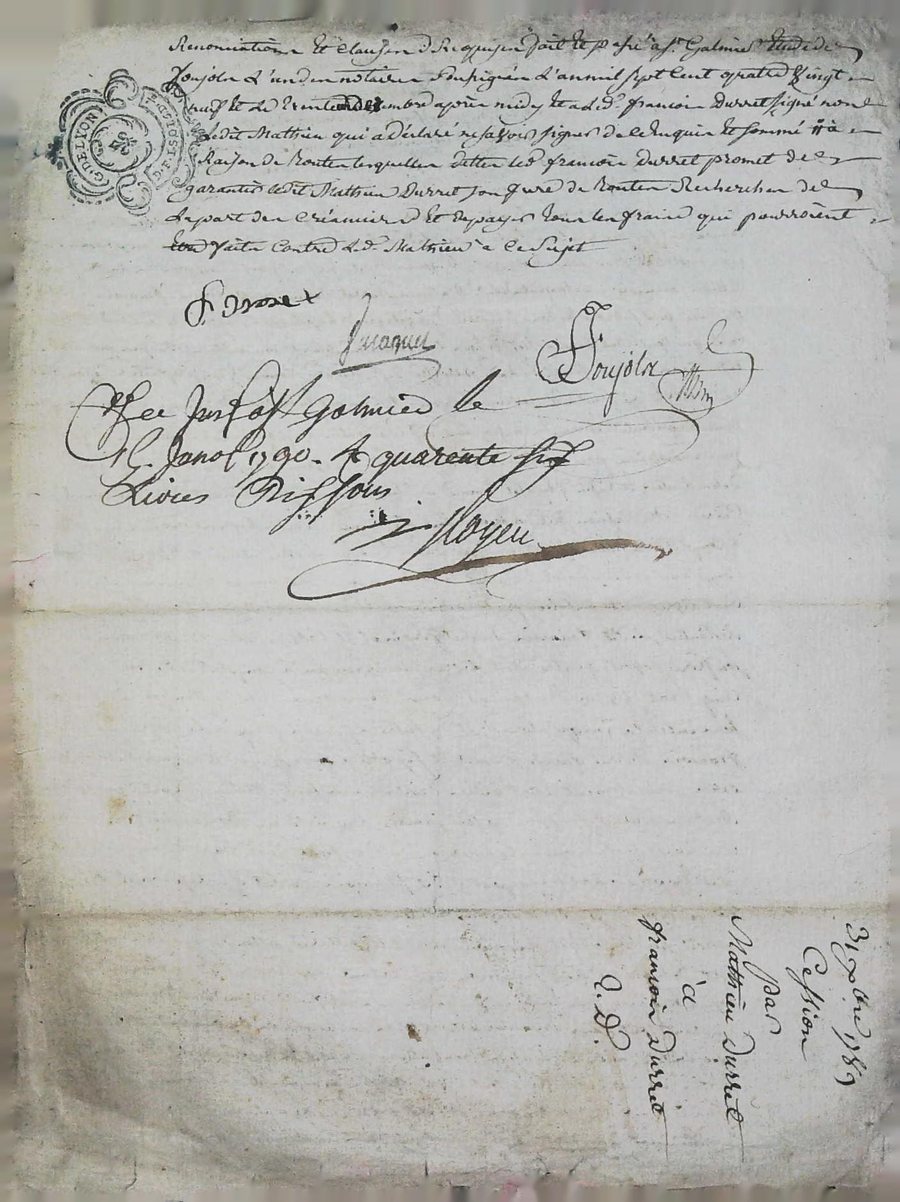 Renonciations et clauses de Requises fait et passé a St. Galmier Etude de
Soujols L'un des notaires soussignés L'an mil sept cent quatre vingt
neuf et le trente décembre après midy et a led. françois Durret signé non
Ledit Mathieu qui a déclaré ne savoir signer de ce enquis et sommé et à
Raison de toutes lesquelles dettes led. françois Durret promet de
garantir ledit Mathieu Durret son frere de toutes Recherches de
La part des Créanciers et de payer tous les fraix qui pourroient
être faits contre led. Mathieu à ce sujet
G. DE LYON
F. Durret
Jacquet
Soujols
St Galmier le
15 Janv 1790. quarente six
Livres Dix sous
Royer
31 Xbre 1789
Cession
par
Mathieu Durret
à
françois Durret